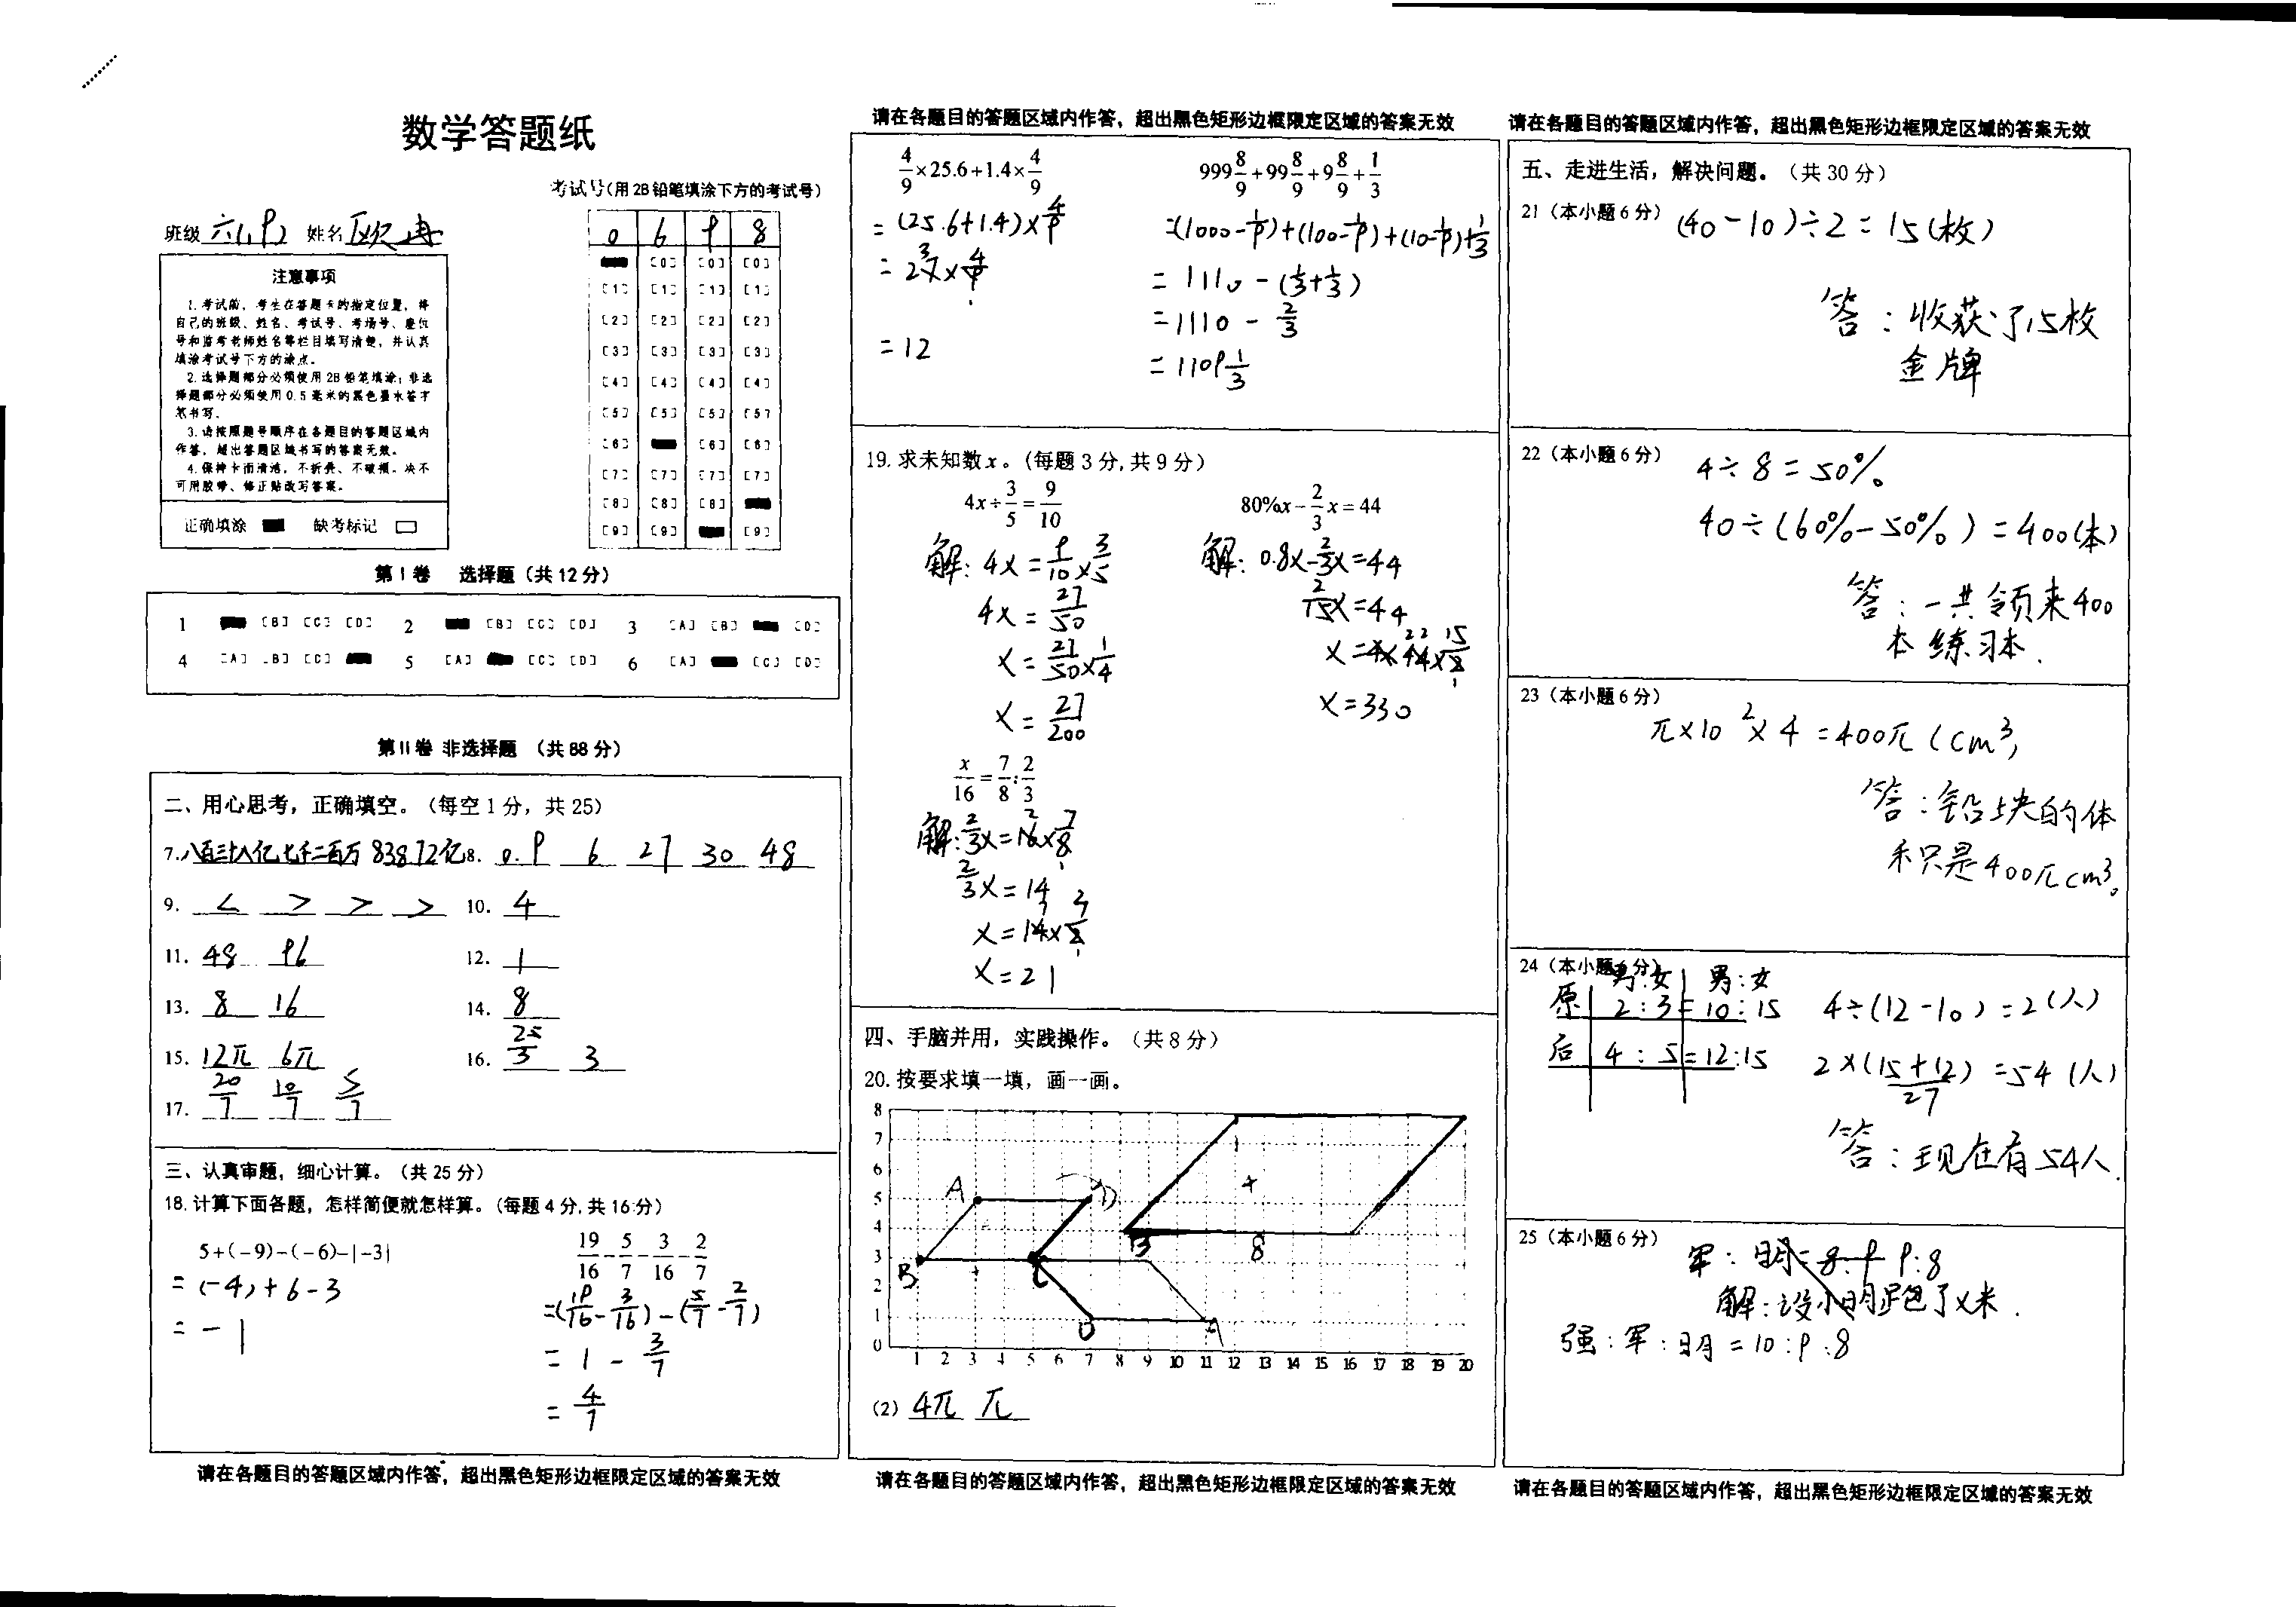 数学答题纸
考试号(用2B铅笔填涂下方的考试号)
班级 六(9) 姓名 欧冉
0 6 9 8
注意事项
1.考试前，考生在答题卡的指定位置，将
自己的班级、姓名、考试号、考场号、座位
号和监考老师姓名等栏目填写清楚，并认真
填涂考试号下方的涂点。
2.选择题部分必须使用2B铅笔填涂；非选
择题部分必须使用0.5毫米的黑色墨水签字
笔书写。
3.请按照题号顺序在各题目的答题区域内
作答，超出答题区域书写的答案无效。
4.保持卡面清洁，不折叠、不破损。决不
可用胶带、修正贴改写答案。
正确填涂 缺考标记
[0] [0] [0]
[1] [1] [1] [1]
[2] [2] [2] [2]
[3] [3] [3] [3]
[4] [4] [4] [4]
[5] [5] [5] [5]
[6] [6] [6]
[7] [7] [7] [7]
[8] [8] [8]
[9] [9] [9]
第Ⅰ卷 选择题（共12分）
1 [B] [C] [D] 2 [B] [C] [D] 3 [A] [B] [D]
4 [A] [B] [C] 5 [A] [C] [D] 6 [A] [C] [D]
第II卷 非选择题 （共88分）
二、用心思考，正确填空。（每空1分，共25）
7. 八百三十八亿七千二百万 838.72亿 8. 0.9 6 27 30 48
9. < > > > 10. 4
11. 48 96 12. 1
13. 8 16 14. 8
15. 12π 6π 16. 25/3 3
17. 20/7 10/7 5/7
三、认真审题，细心计算。（共25分）
18.计算下面各题，怎样简便就怎样算。（每题4分,共16分）
5+(-9)-(-6)-|-3|
=(-4)+6-3
=-1
19/16-5/7-3/16-2/7
=(19/16-3/16)-(5/7-2/7)
=1-3/7
=4/7
请在各题目的答题区域内作答，超出黑色矩形边框限定区域的答案无效
请在各题目的答题区域内作答，超出黑色矩形边框限定区域的答案无效
4/9×25.6+1.4×4/9
=(25.6+1.4)×4/9
=27×4/9
=12
999 8/9+99 8/9+9 8/9+1/3
=(1000-1/9)+(100-1/9)+(10-1/9)+1/3
=1110-(1/3+1/3)
=1110-2/3
=1109 1/3
19.求未知数x。（每题3分,共9分）
4x÷3/5=9/10
解:4x=9/10×3/5
4x=27/50
x=27/50×1/4
x=27/200
80%x-2/3x=44
解:0.8x-2/3x=44
2/15x=44
x=44×15/2
x=330
x/16=7/8:2/3
解:2/3x=16×7/8
2/3x=14
x=14×3/2
x=21
四、手脑并用，实践操作。（共8分）
20.按要求填一填，画一画。
8
7
6
5
4
3
2
1
0
A D
B C
B 8
D A
1 2 3 4 5 6 7 8 9 10 11 12 13 14 15 16 17 18 19 20
(2) 4π π
请在各题目的答题区域内作答，超出黑色矩形边框限定区域的答案无效
请在各题目的答题区域内作答，超出黑色矩形边框限定区域的答案无效
五、走进生活，解决问题。（共30分）
21（本小题6分） (40-10)÷2=15(枚)
答:收获了15枚
金牌
22（本小题6分） 4÷8=50%
40÷(60%-50%)=400(本)
答:一共领来400
本练习本.
23（本小题6分）
π×10²×4=400π(cm³)
答:铅块的体
积只是400πcm³。
24（本小题6分）
男:女 男:女
原 2:3=10:15
后 4:5=12:15
4÷(12-10)=2(人)
2×(15+12)=54(人)
27
答:现在有54人.
25（本小题6分）
军:明=8:9 9:8
解:设小明跑了x米.
强:军:明=10:9:8
请在各题目的答题区域内作答，超出黑色矩形边框限定区域的答案无效